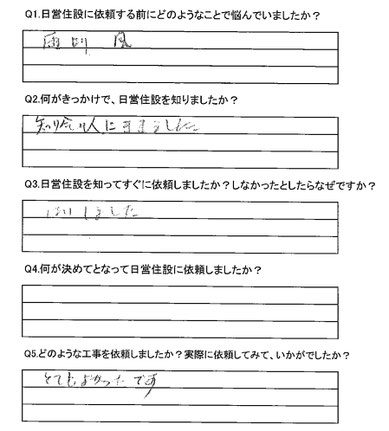 Q1.日営住設に依頼する前にどのようなことで悩んでいましたか？
雨 風
Q2.何がきっかけで、日営住設を知りましたか？
知り合い人にききました
Q3.日営住設を知ってすぐに依頼しましたか？しなかったとしたらなぜですか？
はい しました
Q4.何が決めてとなって日営住設に依頼しましたか？
Q5.どのような工事を依頼しましたか？実際に依頼してみて、いかがでしたか？
とてもよかったです